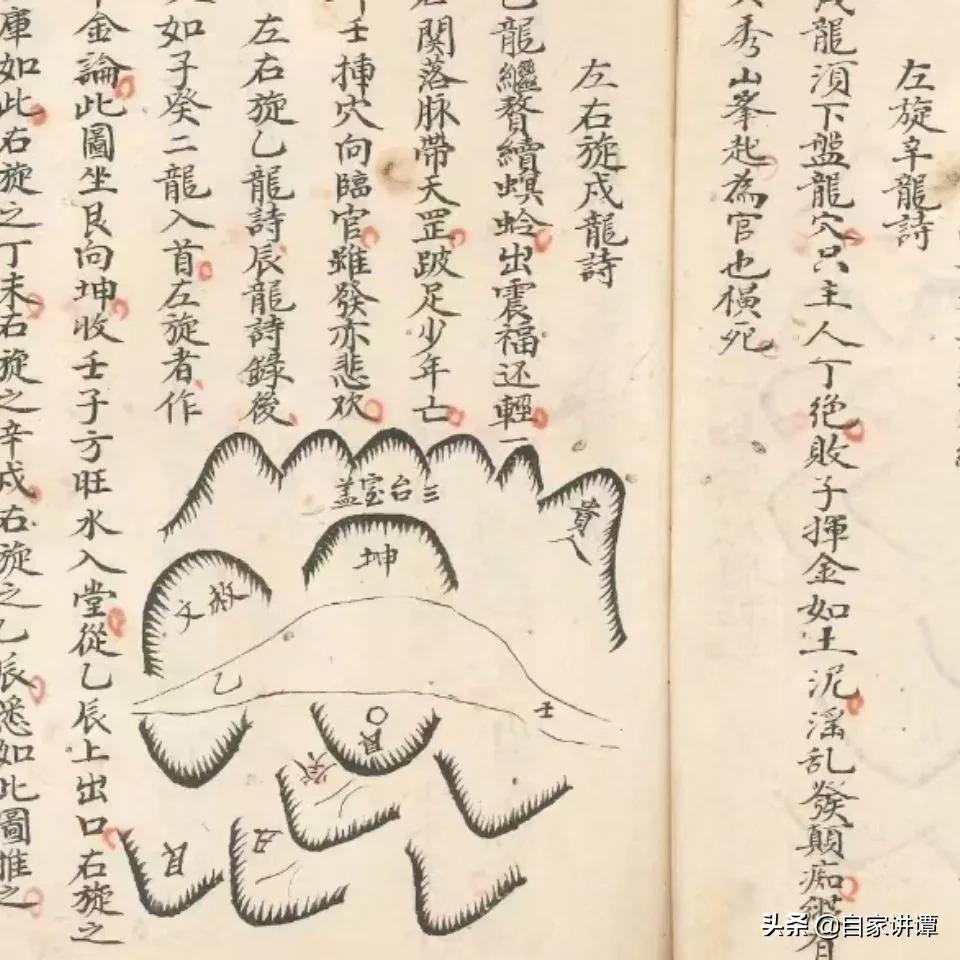 左旋辛龍詩
戌龍須下盤龍穴只主人丁絶敗子揮金如土泥淫乱發顛痴縱有
秀山峯起為官也橫死
左右旋戌龍詩
龍繼贅續螟蛉出震福还輕一
関落脉帶天罡跛足少年亡
壬揷穴向臨官雖發亦悲欢
左右旋乙龍詩辰龍詩錄後
如子癸二龍入首左旋者作
金論此圖坐艮向坤收壬子方旺水入堂從乙辰上出口右旋之
庫如此右旋之丁未右旋之辛戌右旋之乙辰悉如此圖推之
三台宝盖
貴人
坤
文赦
乙
壬
艮
癸
丑
艮
头条 @自家讲谭